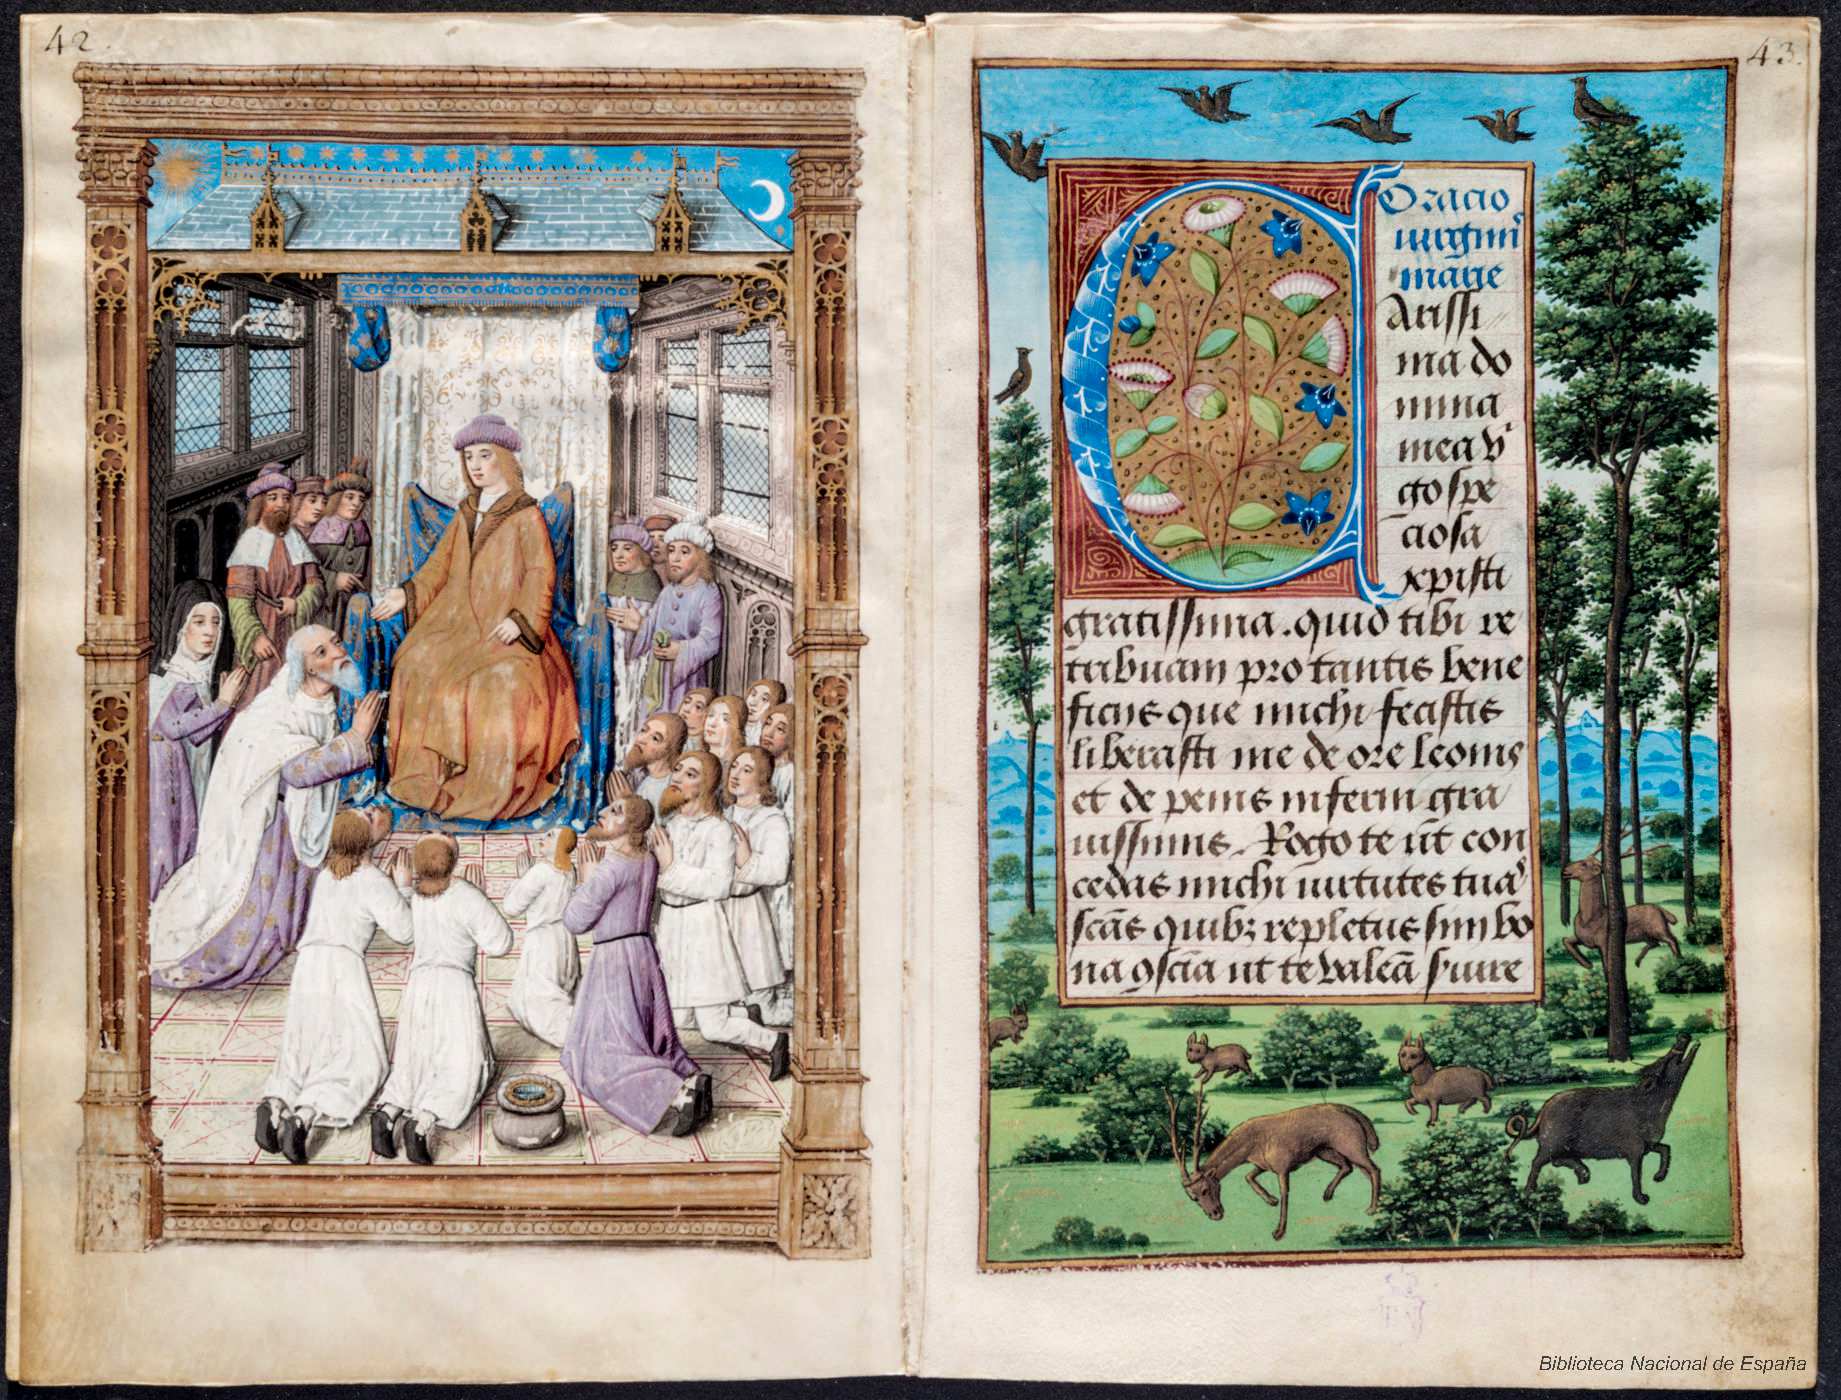 42.
43.
Oracio
virginis
marie
Arissi
ma do
mina
mea v̾
go spe
ciosa
xpisti
gratissima. quid tibi re
tribuam pro tantis bene
ficiis que michi fecistis
liberasti me de ore leonis
et de penis inferni gra
uissimis. Rogo te ut̄ con
cedas michi uirtutes tuas
sc̄as quibꝫ repletus sim bo
na ꝯscīa ut te valeā s̾uire
Biblioteca Nacional de España